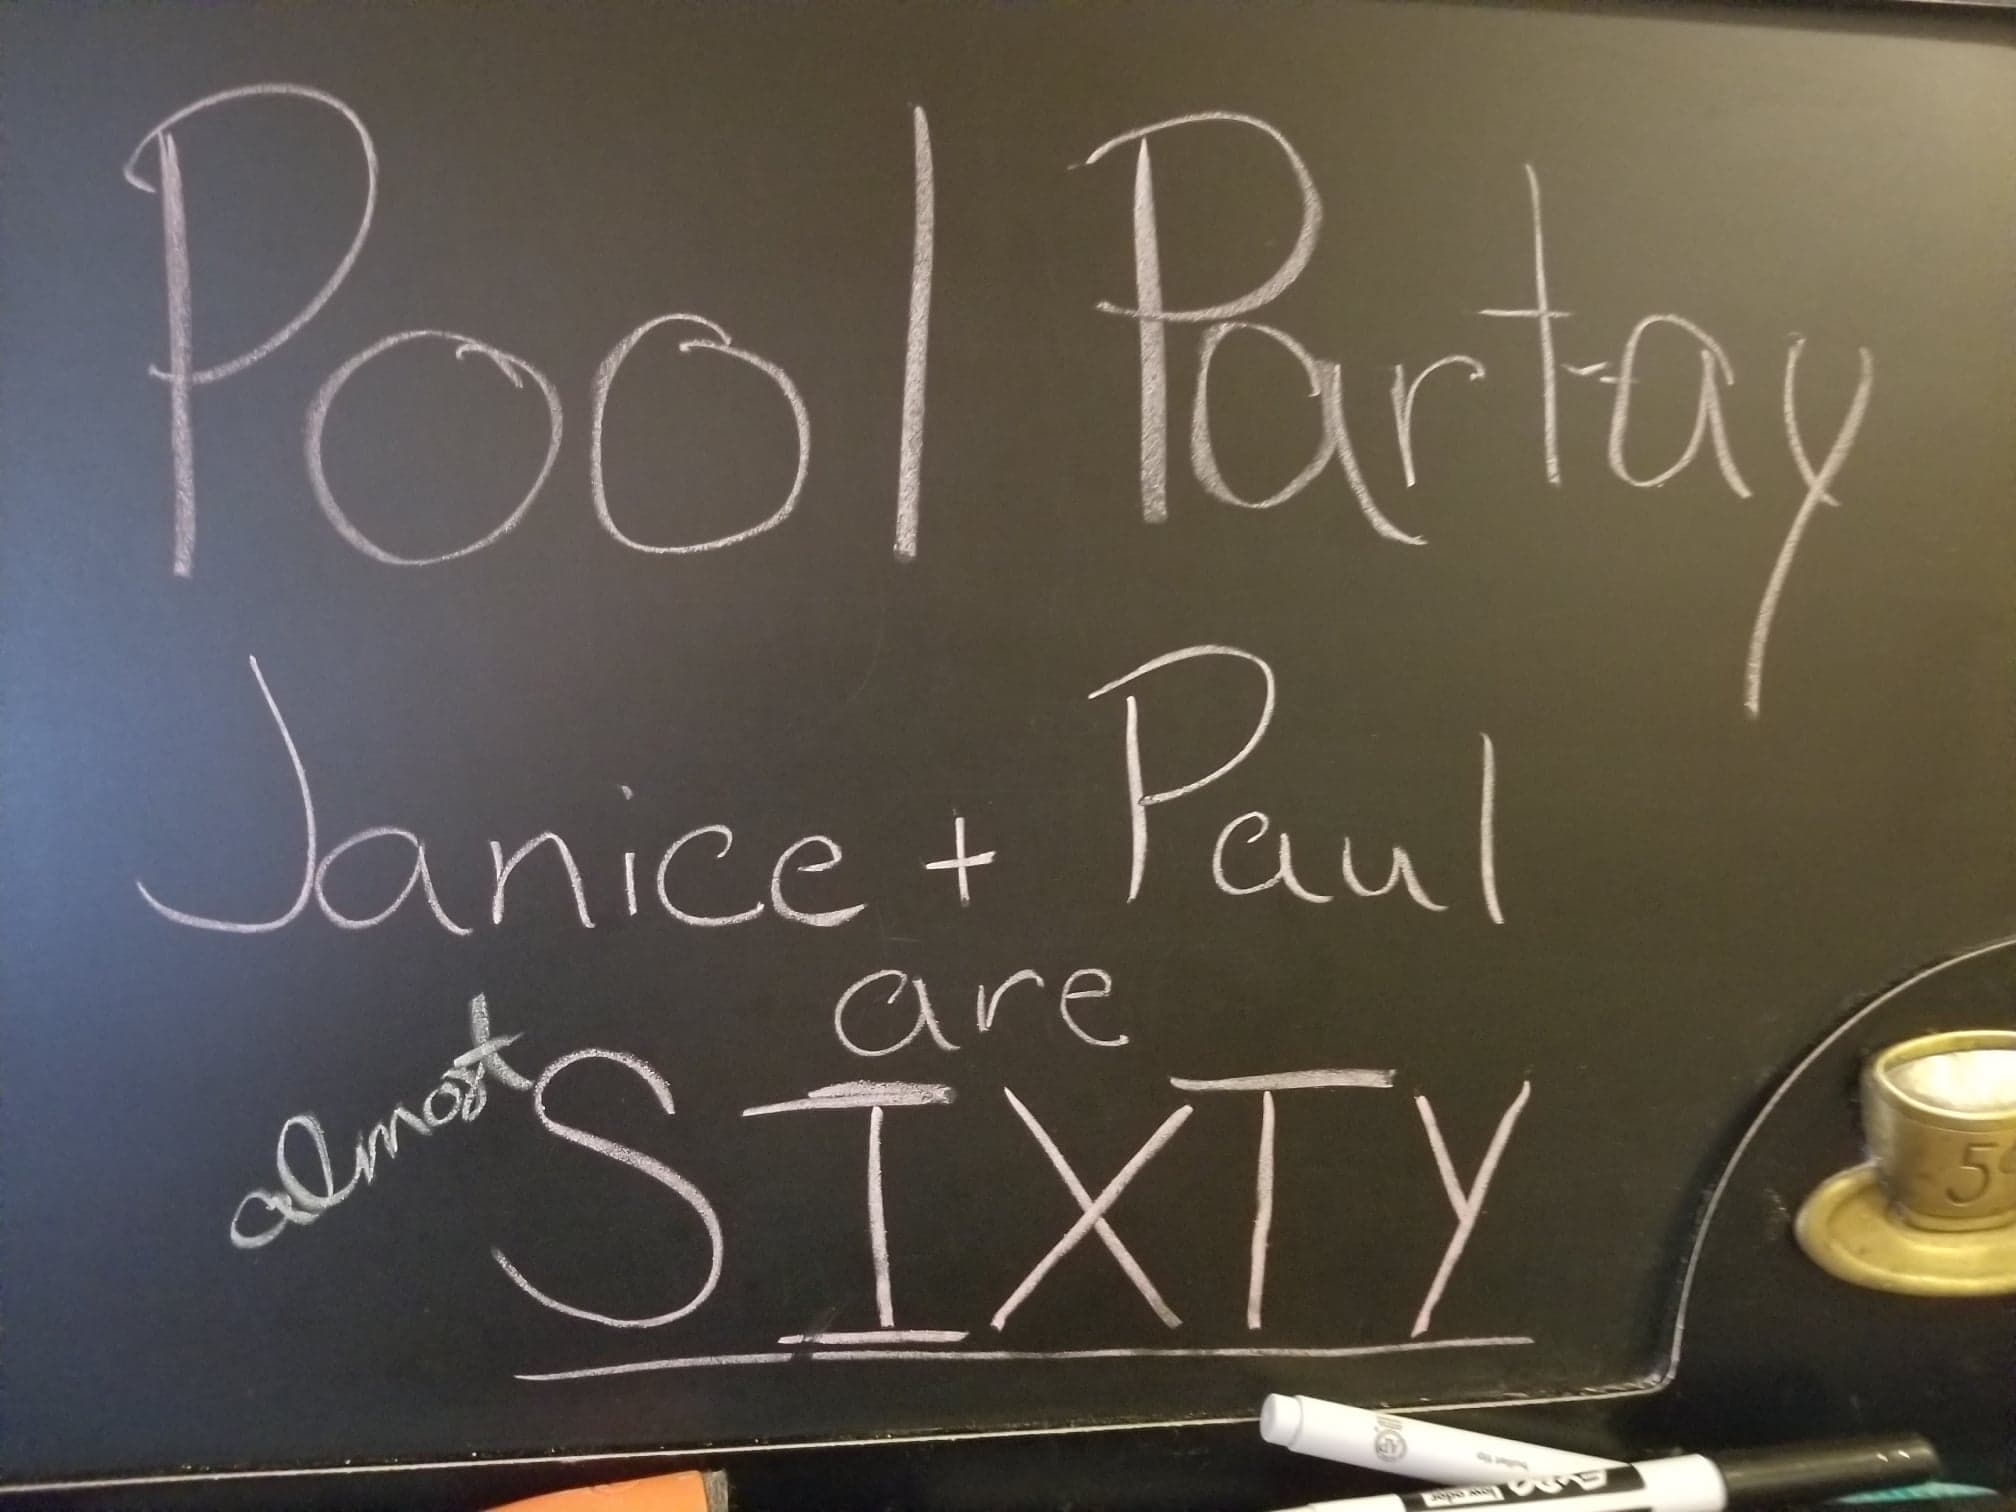 Pool Partay
Janice + Paul
are
almost SIXTY
5¢
low odor